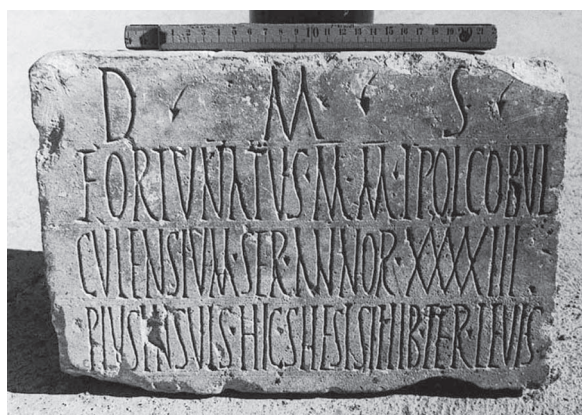 1 2 3 4 5 6 7 8 9 10 11 12 13 14 15 16 17 18 19 20 21
D M S
FORTVNATVS·M·M·IPOLCOBVL
CVLENSIVM·SER·ANNOR·XXXXIII·
PIVS·IN SVIS·HIC TER·LEVIS